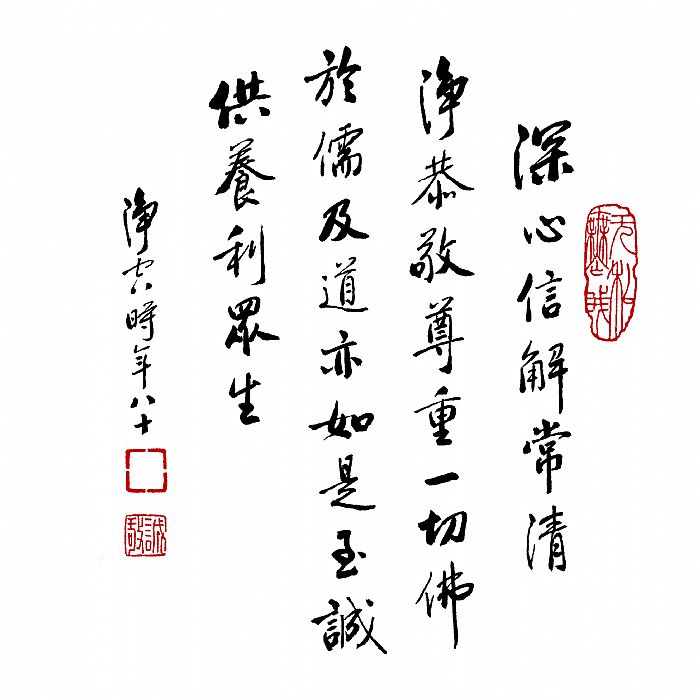 深心信解常清
淨恭敬尊重一切佛
於儒及道亦如是至誠
供養利眾生
淨空時年八十
誠敬